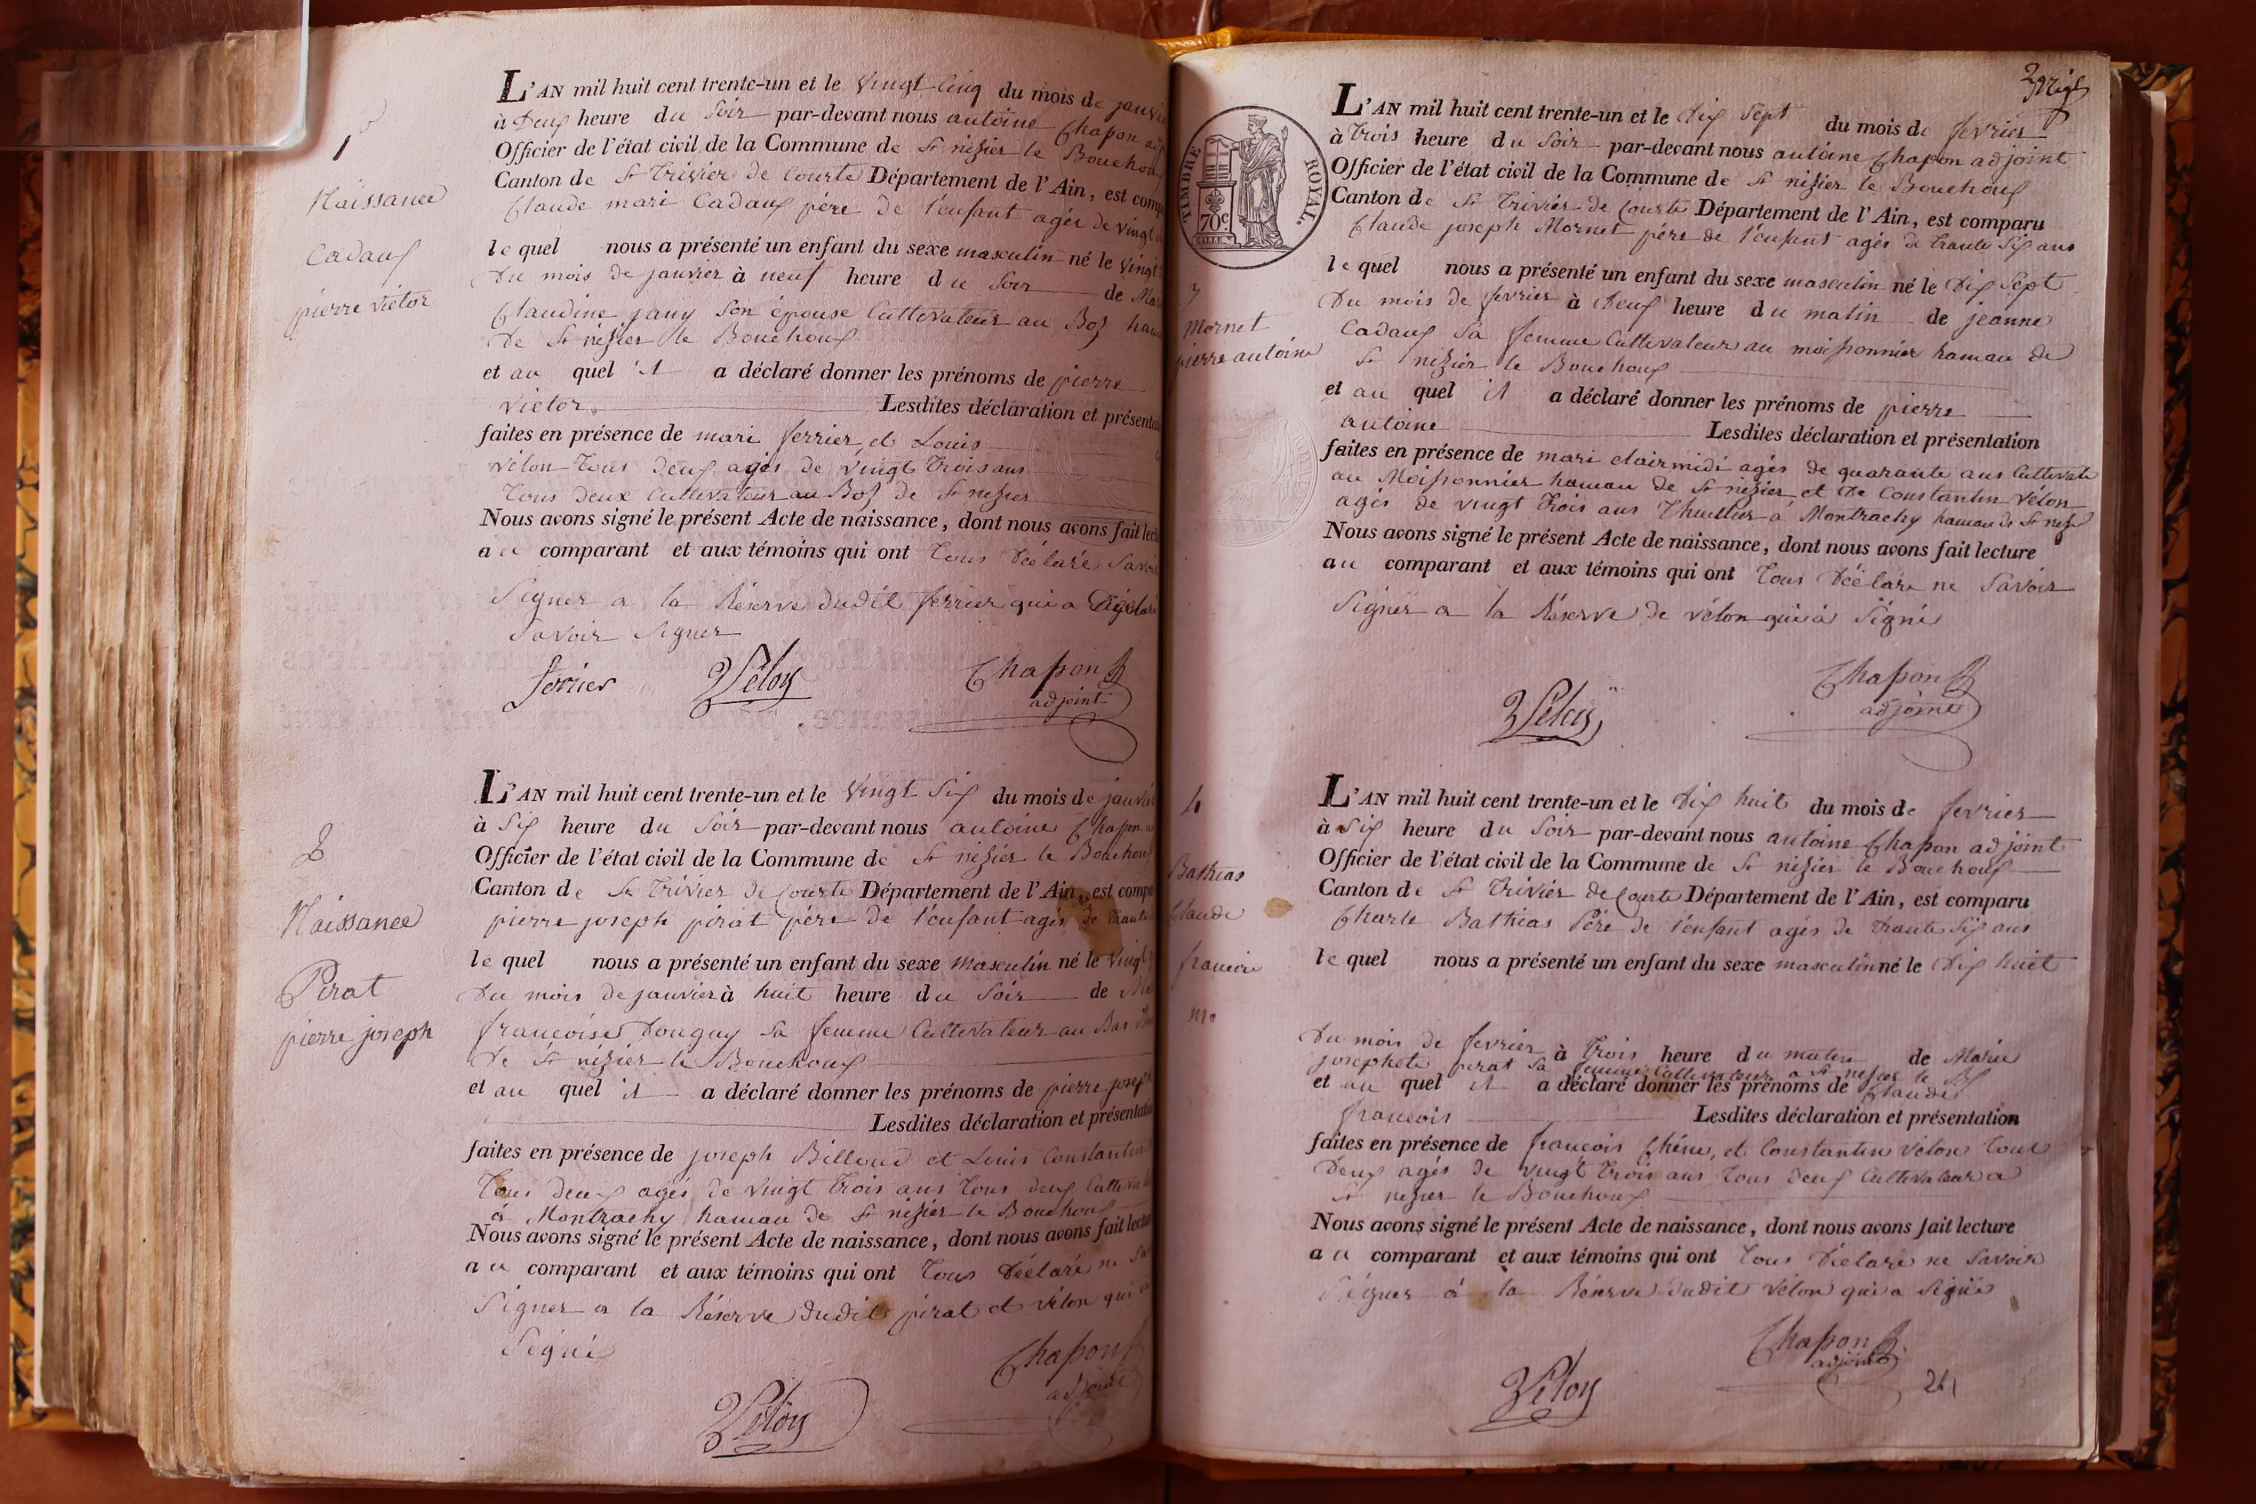 1
Naissance
Cadaux
pierre victor
L'AN mil huit cent trente-un et le vingt cinq du mois de janvie
à Deux heure du Soir par-devant nous antoine Chapon adj
Officier de l'état civil de la Commune de St nizier le Bouchoux
Canton de St Trivier de Courte Département de l'Ain, est comp
Claude mari Cadaux père de l'enfant agés de vingt
le quel nous a présenté un enfant du sexe masculin né le vingt
Du mois de janvier à neuf heure du Soir de Mar
Claudine jany Son épouse Cultivateur au Boz ham
De St nizier le Bouchoux
et au quel il a déclaré donner les prénoms de pierre
victor Lesdites déclaration et présenta
faites en présence de mari ferrier et Louis
vélon Tous deux agés de vingt trois ans
Tous deux Cultivateur au Boz de St nizier
Nous avons signé le présent Acte de naissance, dont nous avons fait lect
au comparant et aux témoins qui ont Tous Déclaré Savoir
Signer a la Réserve dudit ferrier qui a Déclaré
Savoir Signer
ferrier Vélon Chapon
adjoint
2
Naissance
Pirat
pierre joseph
L'AN mil huit cent trente-un et le vingt Six du mois de janvie
à Six heure du Soir par-devant nous antoine Chapon a
Officier de l'état civil de la Commune de St nizier le Bouchoux
Canton de St Trivier de Courte Département de l'Ain, est comp
pierre joseph pirat père de l'enfant agés de trante
le quel nous a présenté un enfant du sexe masculin né le vingt
Du mois de janvier à huit heure du Soir de
francoise Douguy Sa femme Cultivateur au Bas
De St nizier le Bouchoux
et au quel il a déclaré donner les prénoms de pierre joseph
Lesdites déclaration et présentatio
faites en présence de joseph Billoud et Louis Constantin
Tous deux agés de vingt trois ans Tous deux Cultivat
à Montrachy hameau de St nizier le Bouchoux
Nous avons signé le présent Acte de naissance, dont nous avons fait lectu
au comparant et aux témoins qui ont Tous Déclaré ne Sav
Signer a la Réserve dudit pirat et vélon qui
Signé
Chapon
adjoint
Vélon
TIMBRE ROYAL
70c
3
Mornet
pierre antoine
L'AN mil huit cent trente-un et le Dix Sept du mois de fevrier
à Trois heure du Soir par-devant nous antoine Chapon adjoint
Officier de l'état civil de la Commune de St nizier le Bouchoux
Canton de St Trivier de Courte Département de l'Ain, est comparu
Claude joseph Mornet père de l'enfant agés de trante Six ans
le quel nous a présenté un enfant du sexe masculin né le Dix Sept
Du mois de fevrier à Deux heure du matin de jeanne
Cadaux Sa femme Cultivateur au moissonnier hameau de
St nizier le Bouchoux
et au quel il a déclaré donner les prénoms de pierre
antoine Lesdites déclaration et présentation
faites en présence de mari clairmidi agés de quarante ans Cultivate
au Moissonnier hameau de St nizier et de Constantin vélon
agés de vingt trois ans Thuillier à Montrachy hameau de St nizi
Nous avons signé le présent Acte de naissance, dont nous avons fait lecture
au comparant et aux témoins qui ont Tous Déclaré ne Savoir
Signer a la Réserve de vélon qui a Signé
Chapon
adjoint
Vélon
4
Bathias
Claude
francoi
L'AN mil huit cent trente-un et le Dix huit du mois de fevrier
à Six heure du Soir par-devant nous antoine Chapon adjoint
Officier de l'état civil de la Commune de St nizier le Bouchoux
Canton de St Trivier de Courte Département de l'Ain, est comparu
Charle Bathias Père de l'enfant agés de trante Six ans
le quel nous a présenté un enfant du sexe masculin né le Dix huit
Du mois de fevrier à Trois heure du matin de Marie
josephete pirat Sa femme Cultivateur a St nizier le
et au quel il a déclaré donner les prénoms de Claude
francois Lesdites déclaration et présentation
faites en présence de francois Chéne, et Constantin vélon Tout
Deux agés de vingt trois ans Tous deux Cultivateur a
St nizier le Bouchoux
Nous avons signé le présent Acte de naissance, dont nous avons fait lecture
au comparant et aux témoins qui ont Tous Déclaré ne Savoir
Signer a la Réserve dudit vélon qui a Signé
Chapon
adjoint
Vélon